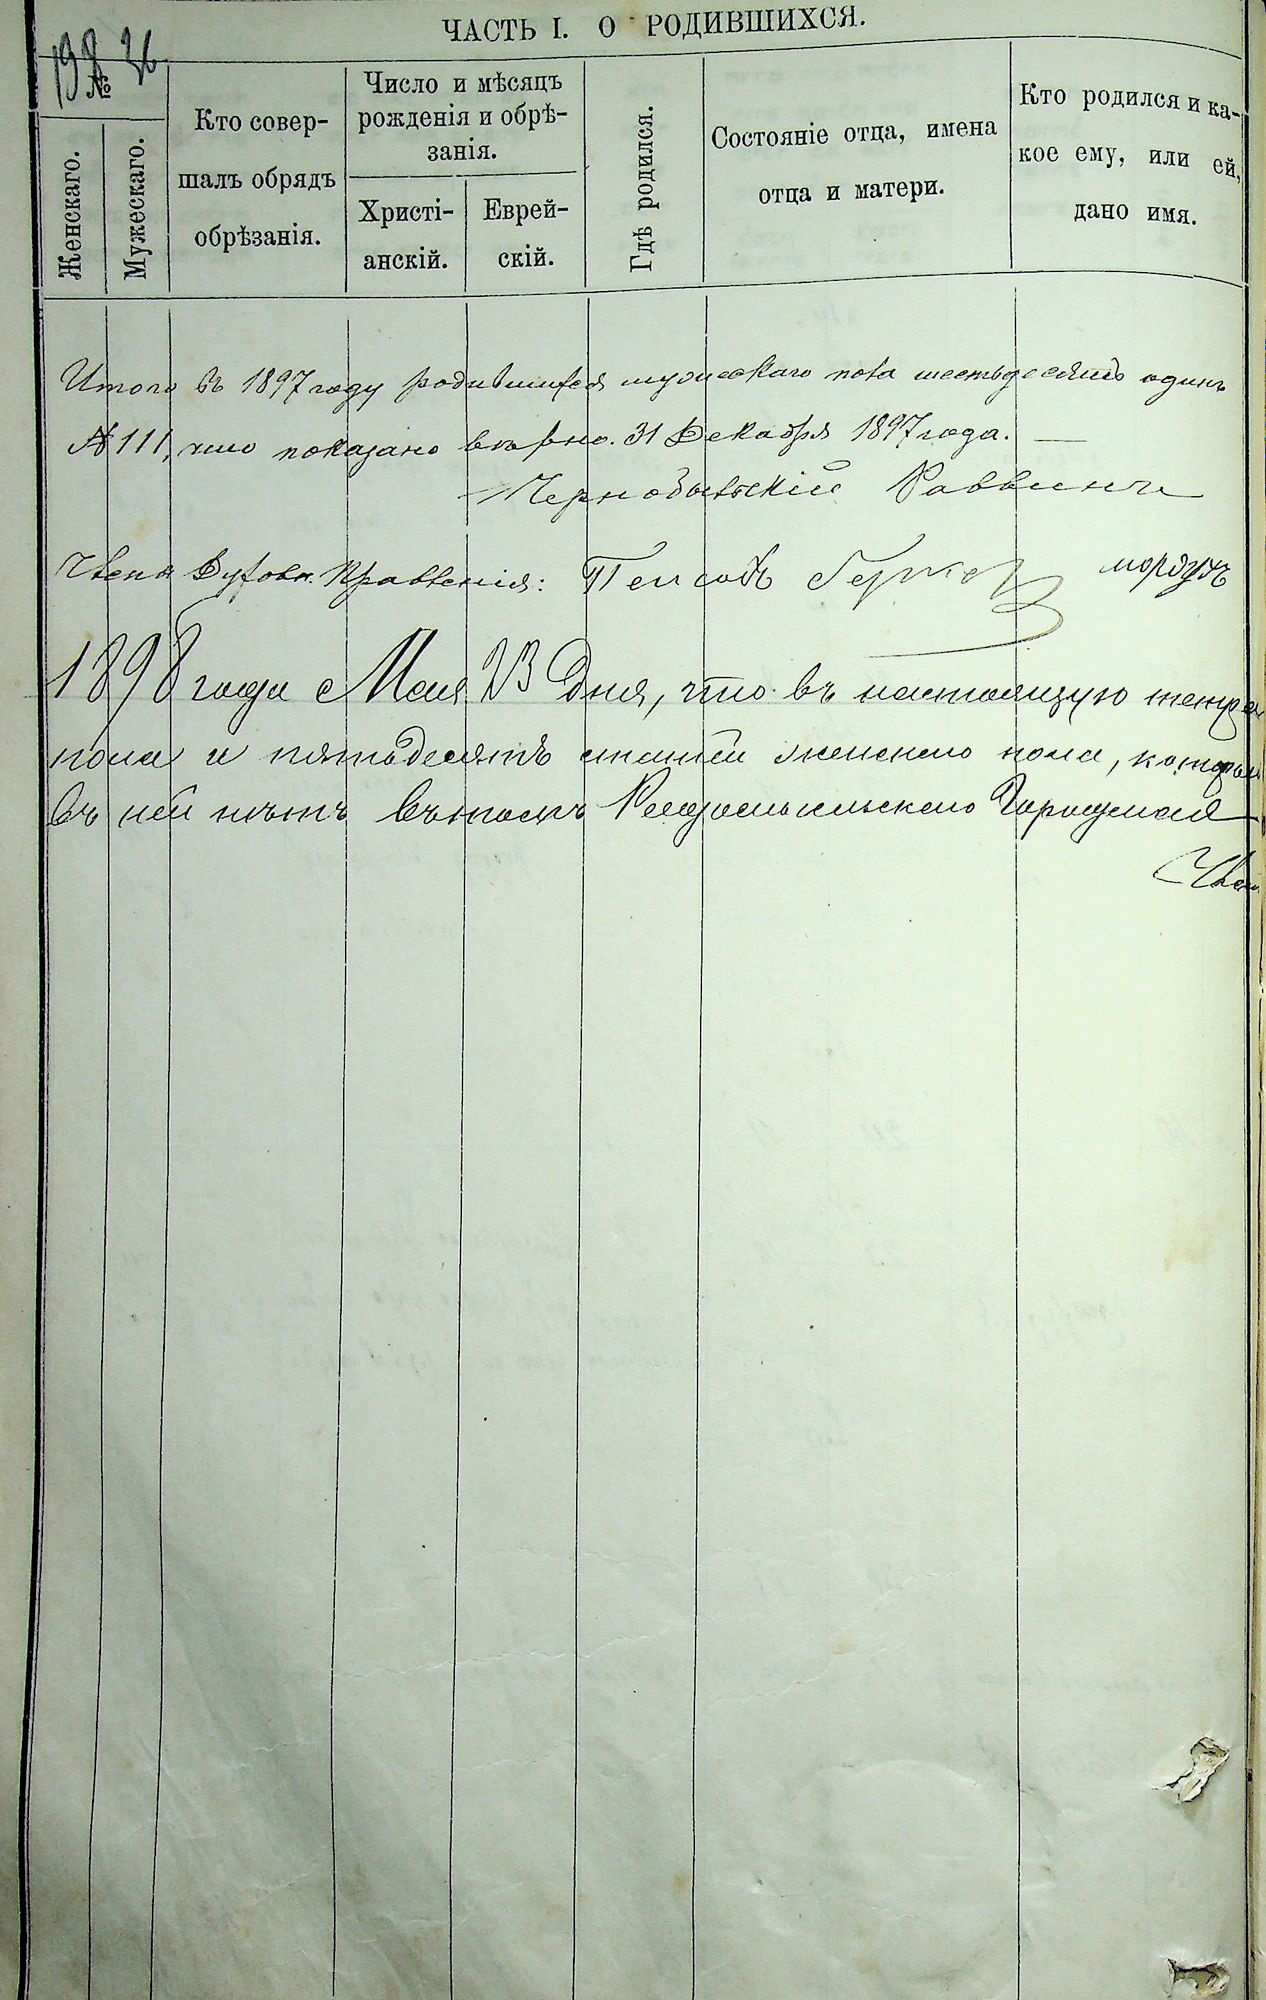 ЧАСТЬ I. О РОДИВШИХСЯ.
198 26
№
Женскаго.
Мужескаго.
Кто совер-
шалъ обрядъ
обрѣзанія.
Число и мѣсяцъ
рожденія и обрѣ-
занія.
Христі-
анскій.
Еврей-
скій.
Гдѣ родился.
Состояніе отца, имена
отца и матери.
Кто родился и ка-
кое ему, или ей,
дано имя.
Итого въ 1897 году родившихся мужескаго пола шестьдесятъ одинъ
№ 111, что показано вѣрно. 31 Декабря 1897 года.
Чернобыльскій Раввинъ
Члены Духовн. Правленія: мордухъ
1898 года Мая 23 Дня, что въ настоящую тетрад
пола и пятьдесятъ женскаго пола, которы
въ ней нѣтъ въ томъ Радомысльская Городская
Член